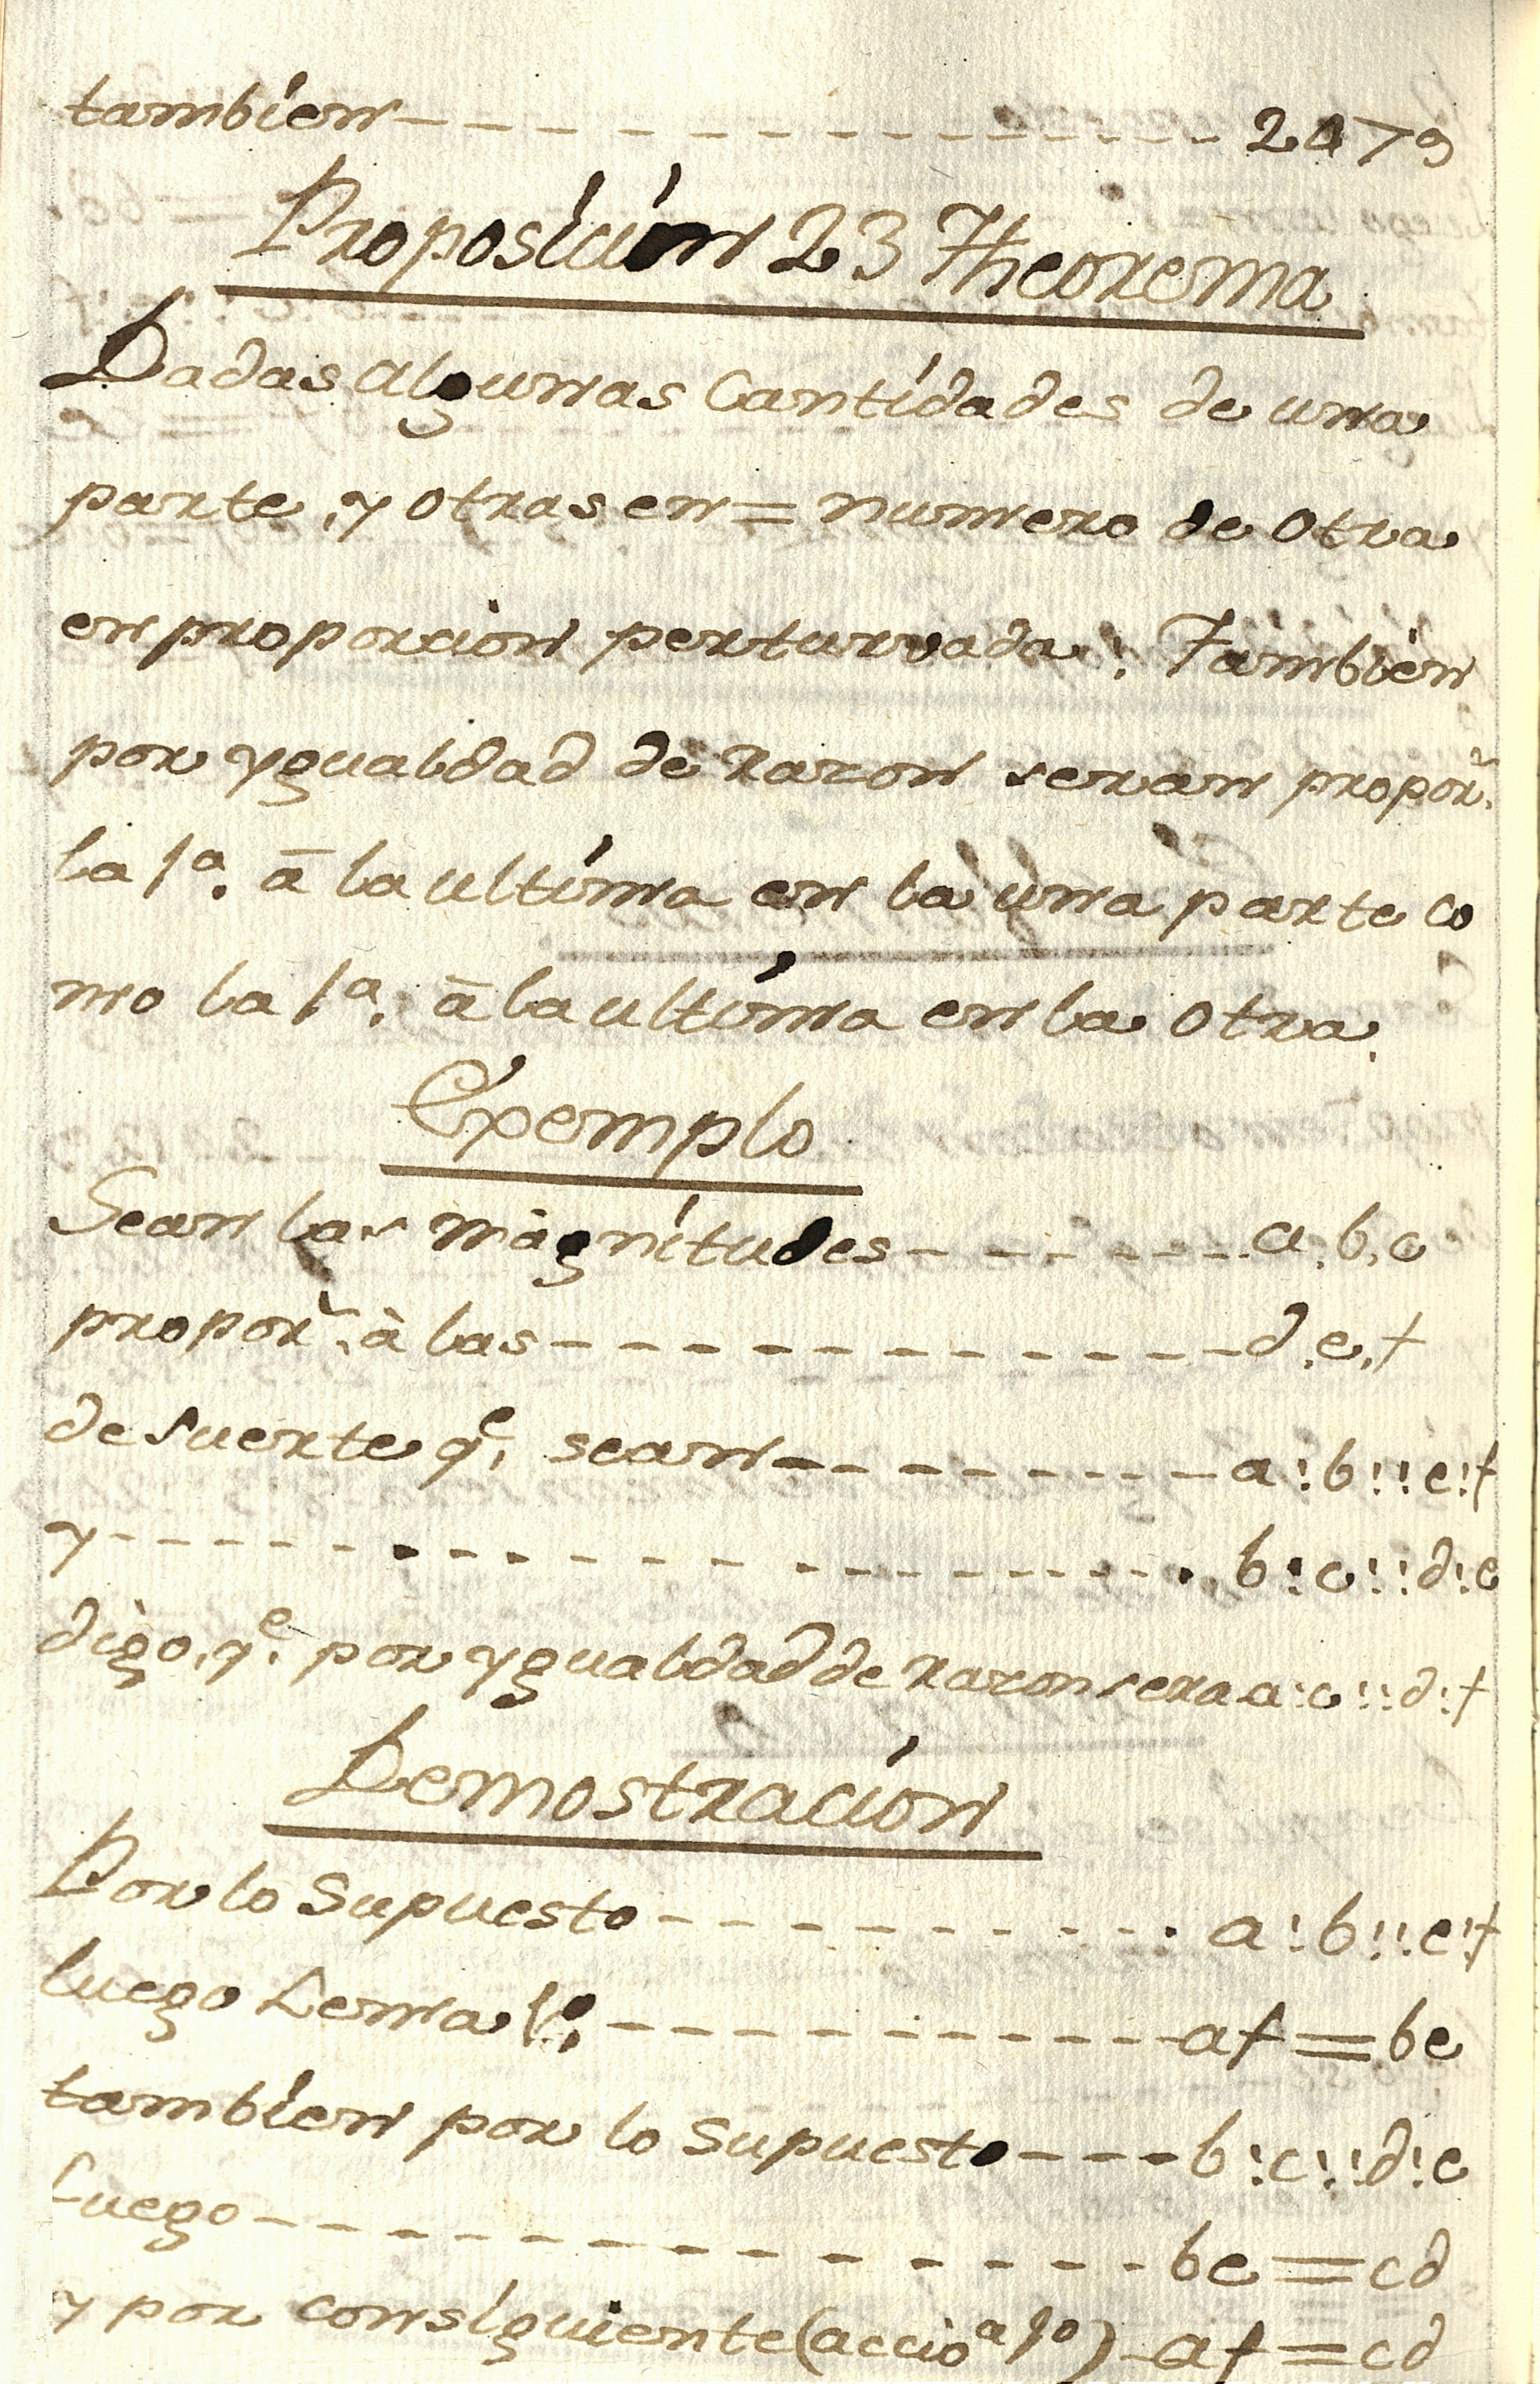 tambien - - - - - - - - - - - - 2479
Proposicion 23 Theorema
Dadas algunas Cantidades de una
parte, y otras en = numero de otra
en proporcion perturvada: Tambien
por ygualdad de razon seran propor.ˢ
la 1ª. à la ultima en la una parte co
mo la 1ª. à la ultima en la otra.
Exemplo
Sean las magnitudes - - - - - - - a, b, c
propor.ˢ à las - - - - - - - - - - - d, e, f
de suerte qᵉ. sean - - - - - - - - a:b::e:f
y - - - - - - - - - - - - - - - - b:c::d:e
digo, qᵉ. por ygualdad de razon sera a:c::d:f
Demostracion
Por lo Supuesto - - - - - - - - - a:b::e:f
luego Lema 1º. - - - - - - - - - - af = be
tambien por lo Supuesto - - - b:c::d:e
Luego - - - - - - - - - - - - - - be = cd
y por consiguiente (accioª 1º) - af = cd